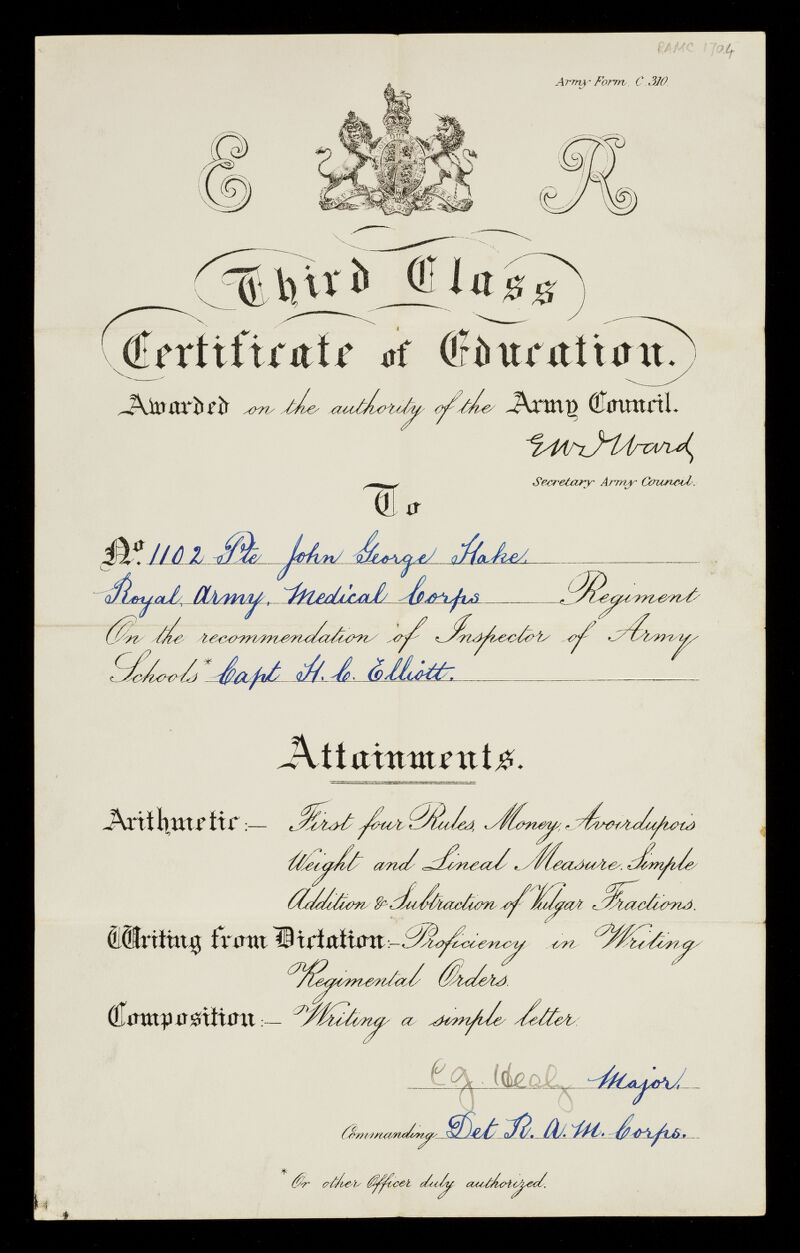 RAMC 1704
Army Form C. 310
E R
Third Class
Certificate of Education.
Awarded on the authority of the Army Council.
EWDWard
Secretary Army Council.
To
No. 1102 Pte John George Hake,
Royal, Army, Medical Corps Regiment
On the recommendation of Inspector of Army
Schools* Capt H. C. Elliott.
Attainments.
Arithmetic:— First four Rules, Money, Avoirdupois
Weight and Lineal Measure. Simple
Addition & Subtraction of Vulgar Fractions.
Writing from Dictation:— Proficiency in Writing
Regimental Orders.
Composition:— Writing a simple letter.
Healy Major.
Commanding Det R. A. M. Corps.
* Or other Officer duly authorized.